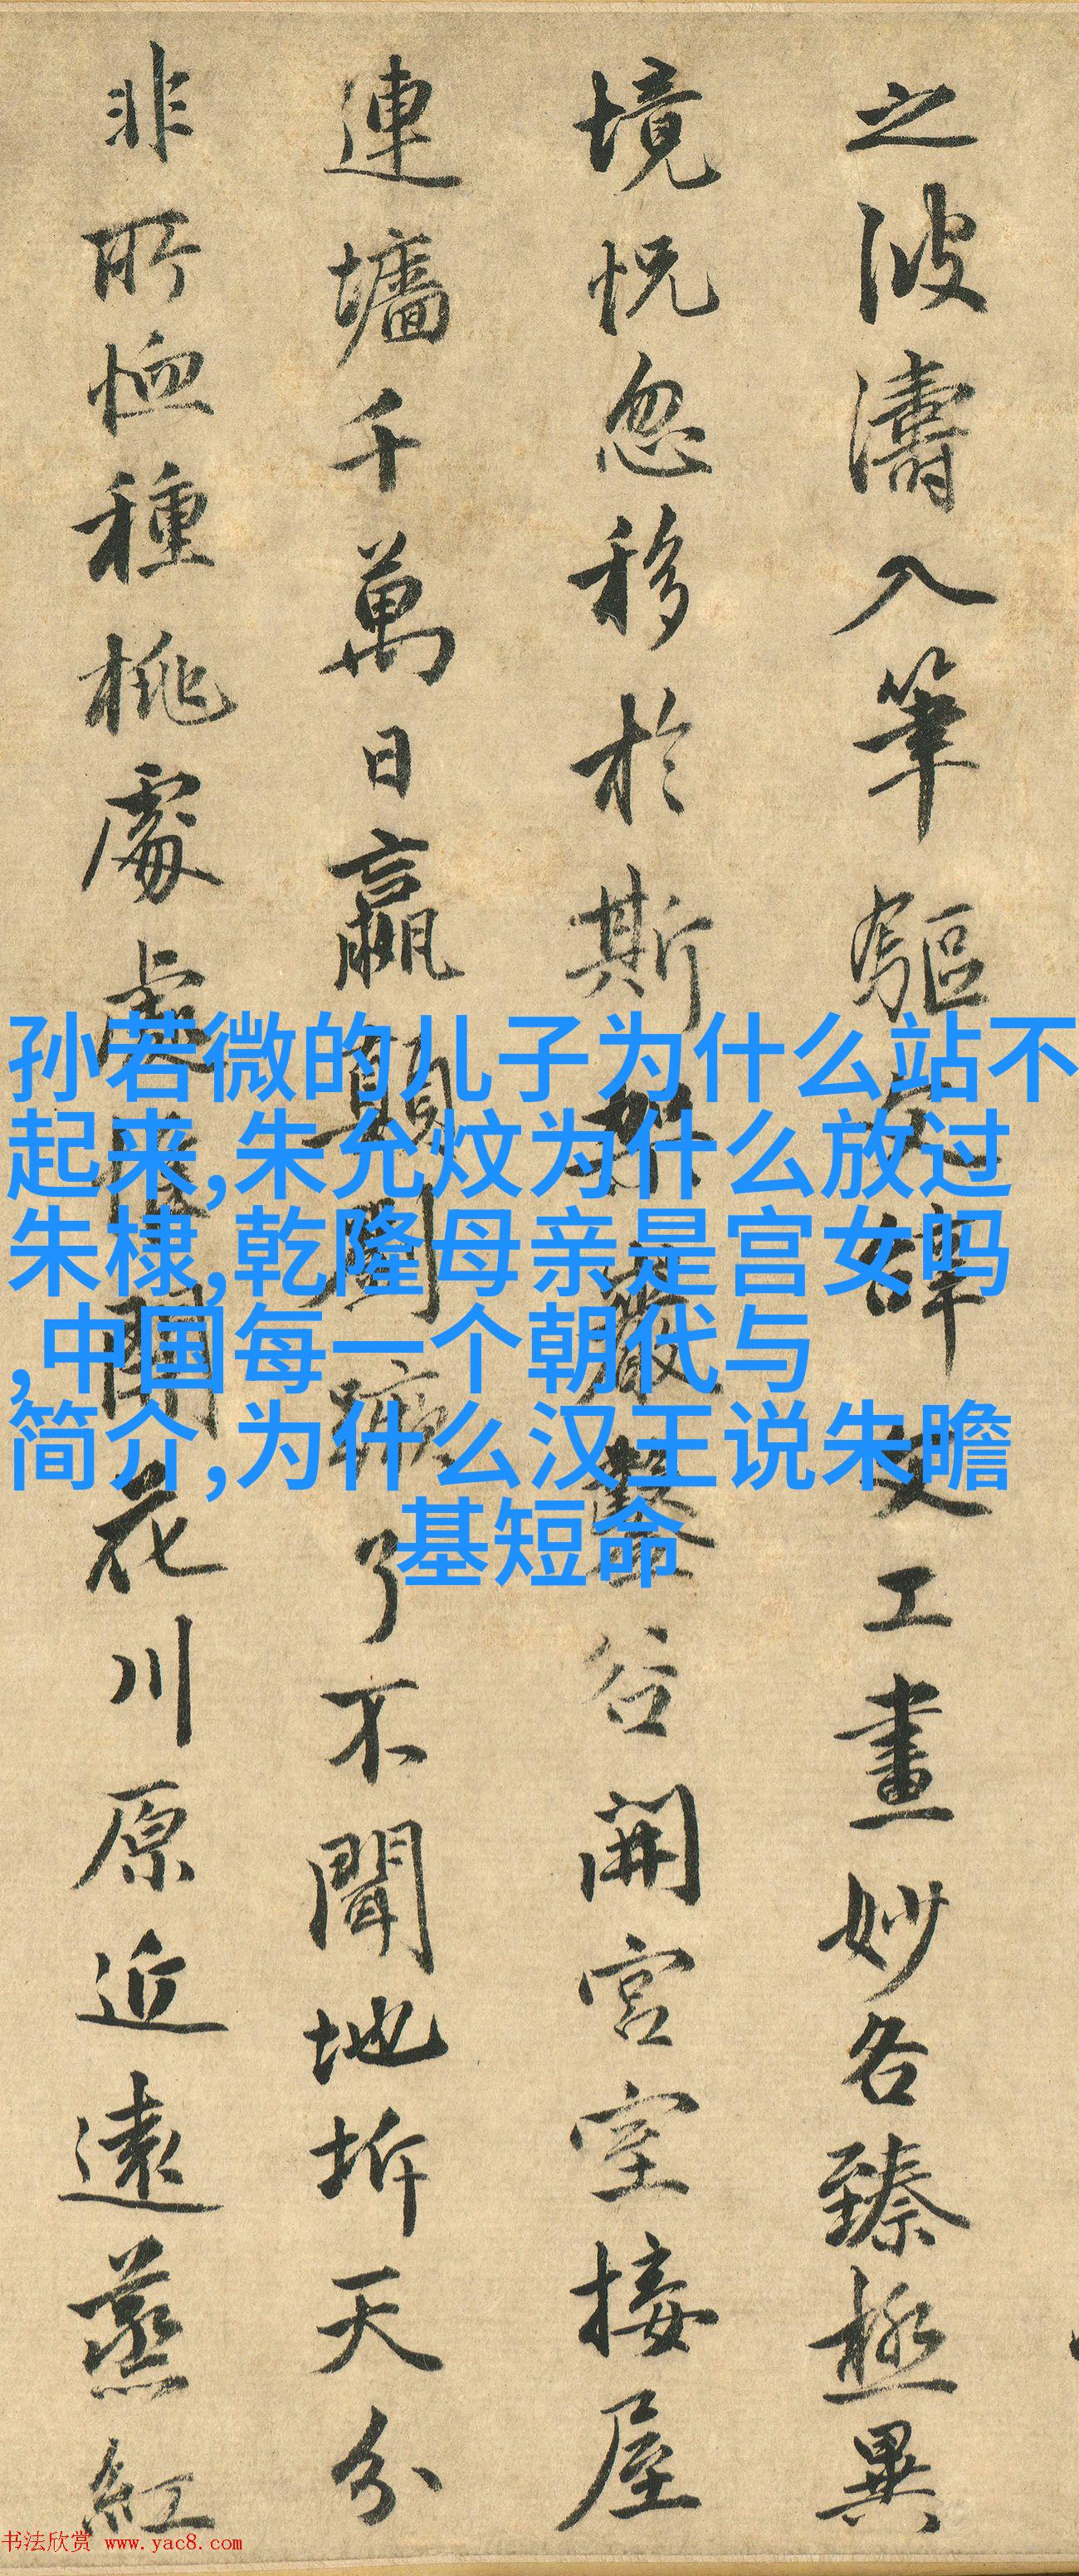 之波濤入筆驅文辭文工畫妙各臻極異
境怳忽移於斯架巖鑿谷開宮室接屋
連墻千萬日嬴顛劉蹶了不聞地坼天分
非所恤種桃處處惟開花川原近遠蒸紅
孙若微的儿子为什么站不
起来,朱允炆为什么放过
朱棣,乾隆母亲是宫女吗
,中国每一个朝代与
简介,为什么汉王说朱瞻
基短命
书法欣赏 www.yac8.com